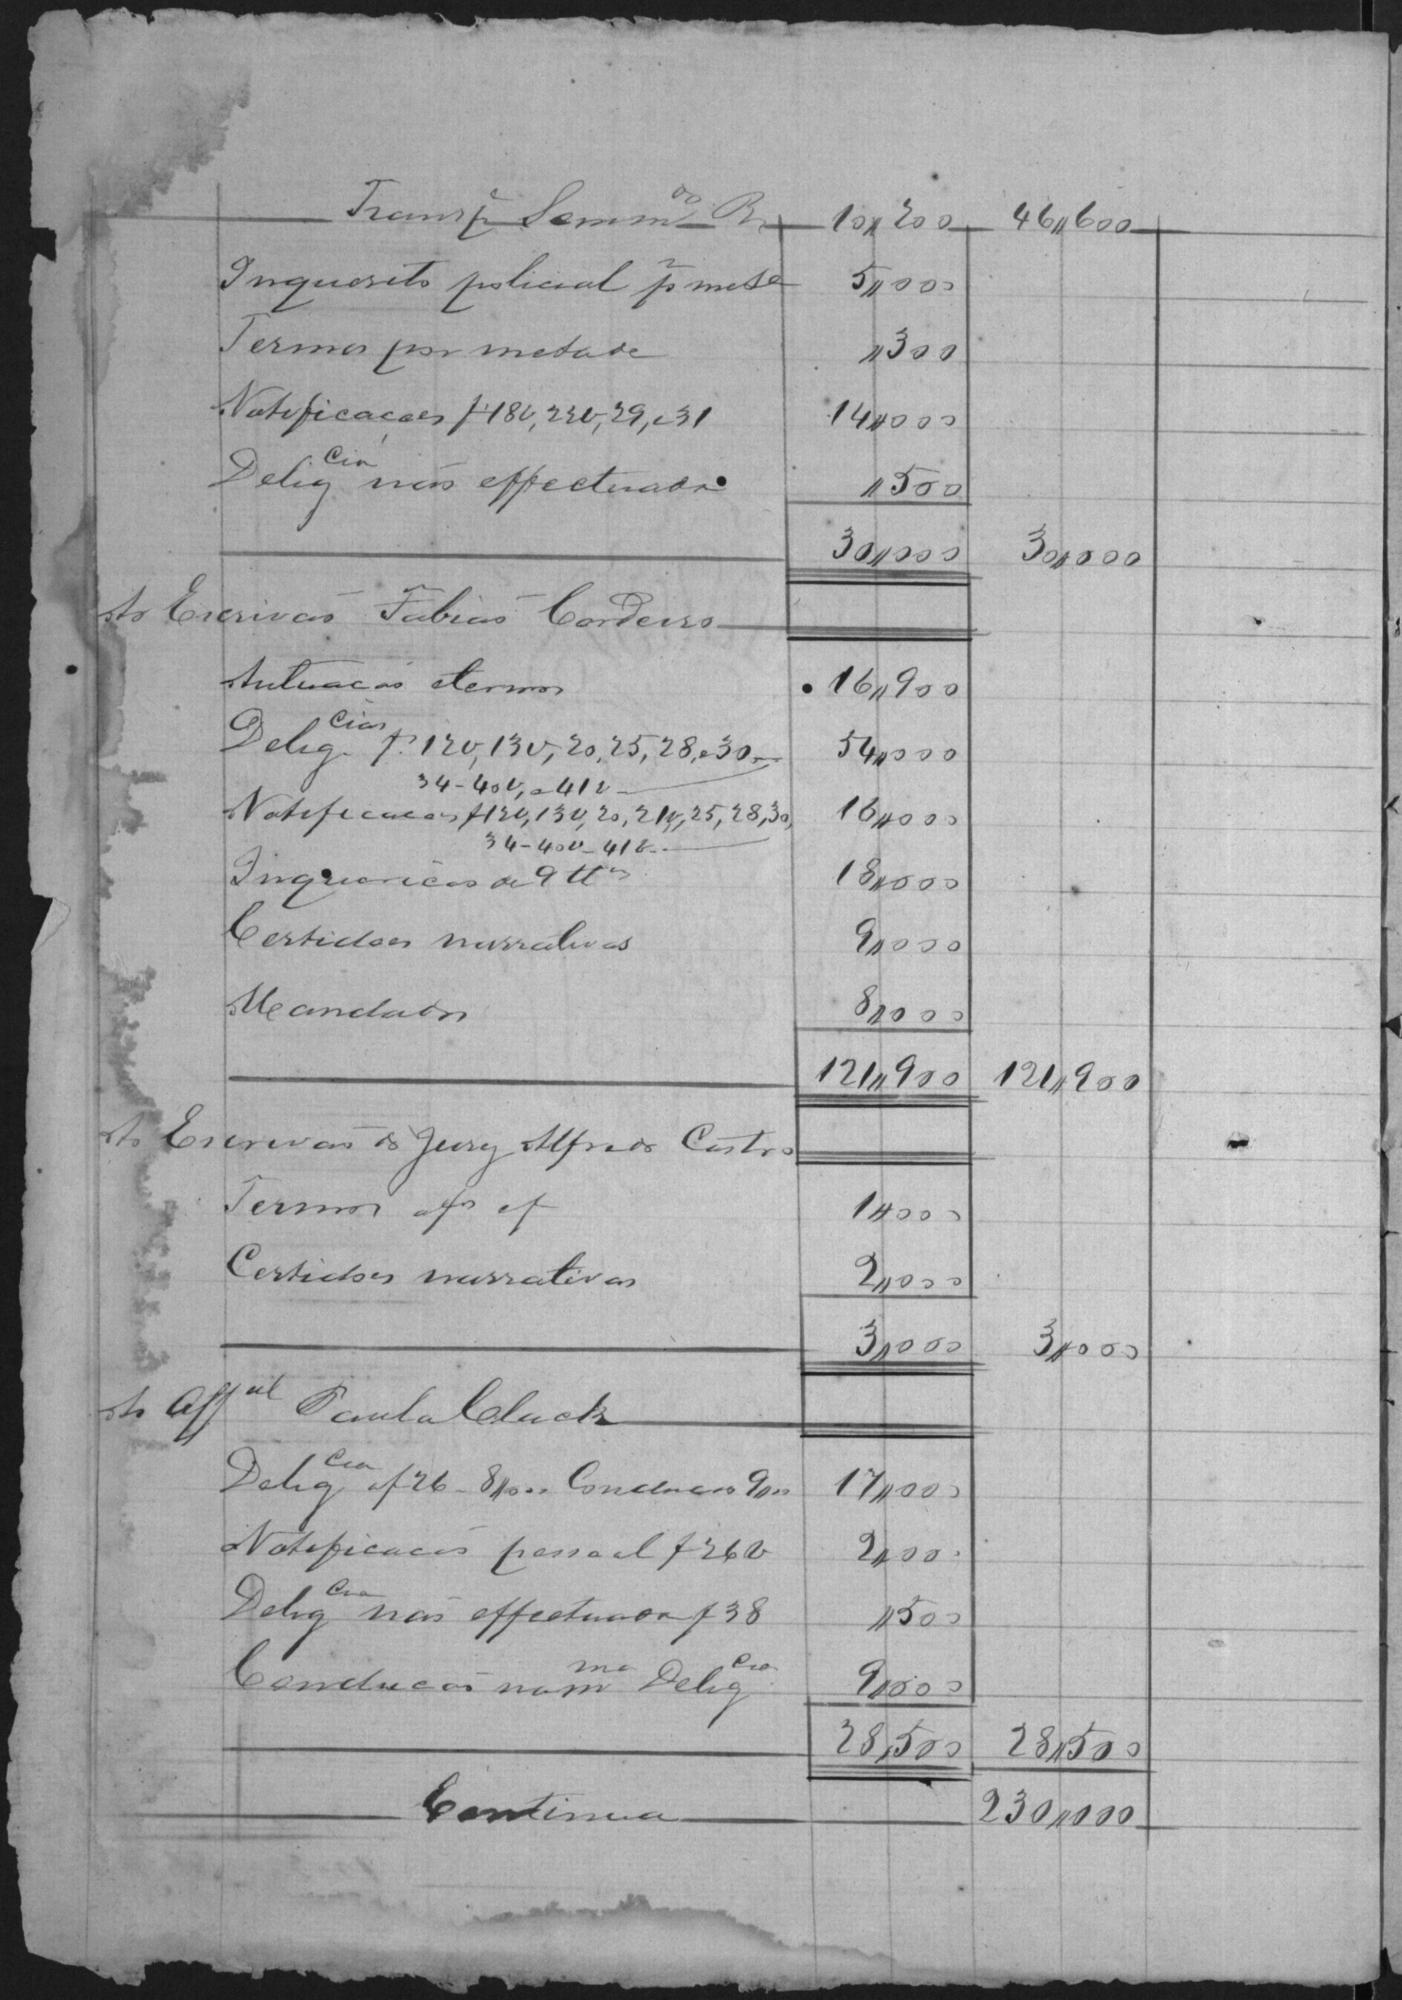 Transp. Sommdo R. 10,,200 46,,600
Inquerito policial p mete 5,,000
Termos por metade ,,300
Notificaçoes f 18v, 22v, 29, e 31 14,,000
Deligcia não effectuada ,,500
30,,000 30,,000
Ao Escrivão Fabião Cordeiro
Autuacão e termos 16,,900
Deligcias f. 12v, 13v, 20, 25, 28, e 30
34 - 40v, e 41v 54,,000
Notificacões f 12v, 13v, 20, 21v, 25, 28, 30,
34 - 40v - 41v 16,,000
Inquiricões de 9 ttas 18,,000
Certidões narrativas 9,,000
Mandados 8,,000
121,,900 121,,900
Ao Escrivão do Jury Alfredo Castro
Termos 1,,000
Certidões narrativas 2,,000
3,,000 3,,000
Ao Offal Paula Cluck
Deligcia f 26 - 8,,000 Conducão 9,,000 17,,000
Notificacão pessoal f 26v 2,,000
Deligcia não effectuada f 38 ,,500
Conducão na mma Deligcia 9,,000
28,500 28,,500
Continua 230,,000